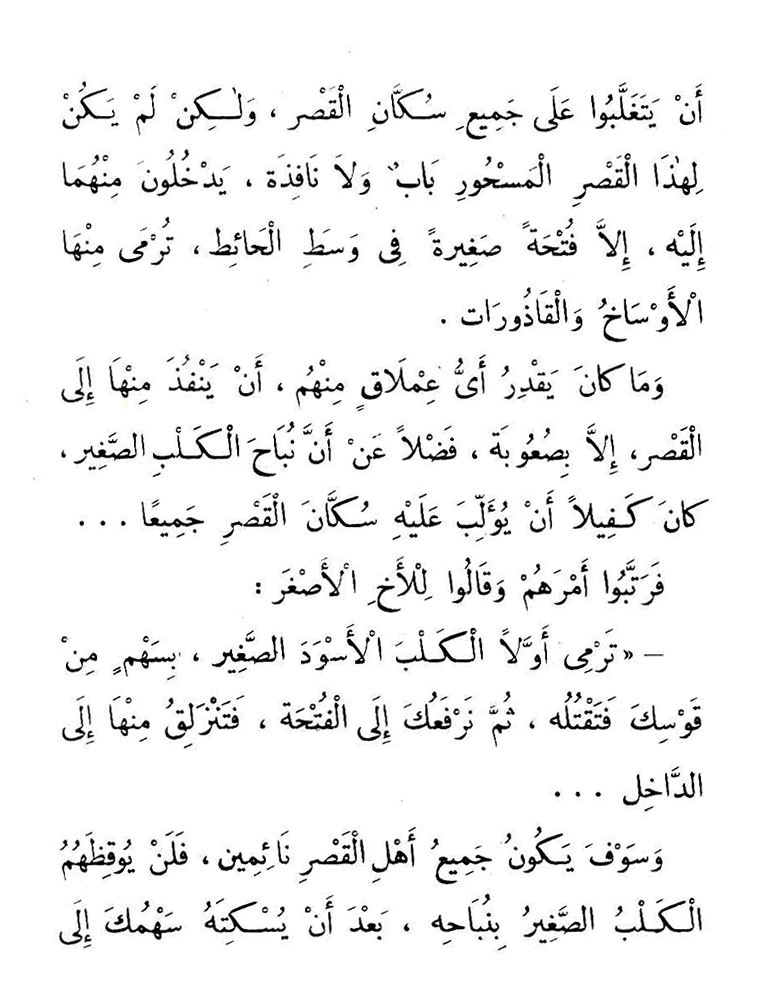 أَنْ يَتَغَلَّبُوا عَلَى جَمِيعِ سُكَّانِ الْقَصْرِ ، وَلٰكِنْ لَمْ يَكُنْ
لِهٰذَا الْقَصْرِ الْمَسْحُورِ بَابٌ وَلاَ نَافِذَة ، يَدْخُلُونَ مِنْهُمَا
إِلَيْه ، إِلاَّ فُتْحَةً صَغِيرةً فِى وَسَطِ الْحَائِط ، تُرْمَى مِنْهَا
الْأَوْسَاخُ وَالْقَاذُورَات .
وَمَا كانَ يَقْدِرُ أَىُّ عِمْلَاقٍ مِنْهُم ، أَنْ يَنْفُذَ مِنْهَا إِلَى
الْقَصْر ، إِلاَّ بِصُعُوبَة ، فَضْلاً عَنْ أَنَّ نُبَاحَ الْكَلْبِ الصَّغِير ،
كانَ كَفِيلاً أَنْ يُؤَلِّبَ عَلَيْهِ سُكَّانَ الْقَصْرِ جَمِيعًا . . .
فَرَتَّبُوا أَمْرَهُمْ وَقَالُوا لِلْأَخِ الْأَصْغَرَ :
– « تَرْمِى أَوَّلاً الْكَلْبَ الْأَسْوَدَ الصَّغِير ، بِسَهْمٍ مِنْ
قَوْسِكَ فَتَقْتُلُه ، ثُمَّ نَرْفَعُكَ إِلَى الْفُتْحَة ، فَتَنْزَلِقُ مِنْهَا إِلَى
الدَّاخِل . . .
وَسَوْفَ يَكُونُ جَمِيعُ أَهْلِ الْقَصْرِ نَائِمِين ، فَلَنْ يُوقِظَهُمُ
الْكَلْبُ الصَّغِيرُ بِنُبَاحِه ، بَعْدَ أَنْ يُسْكِتَهُ سَهْمُكَ إِلَى